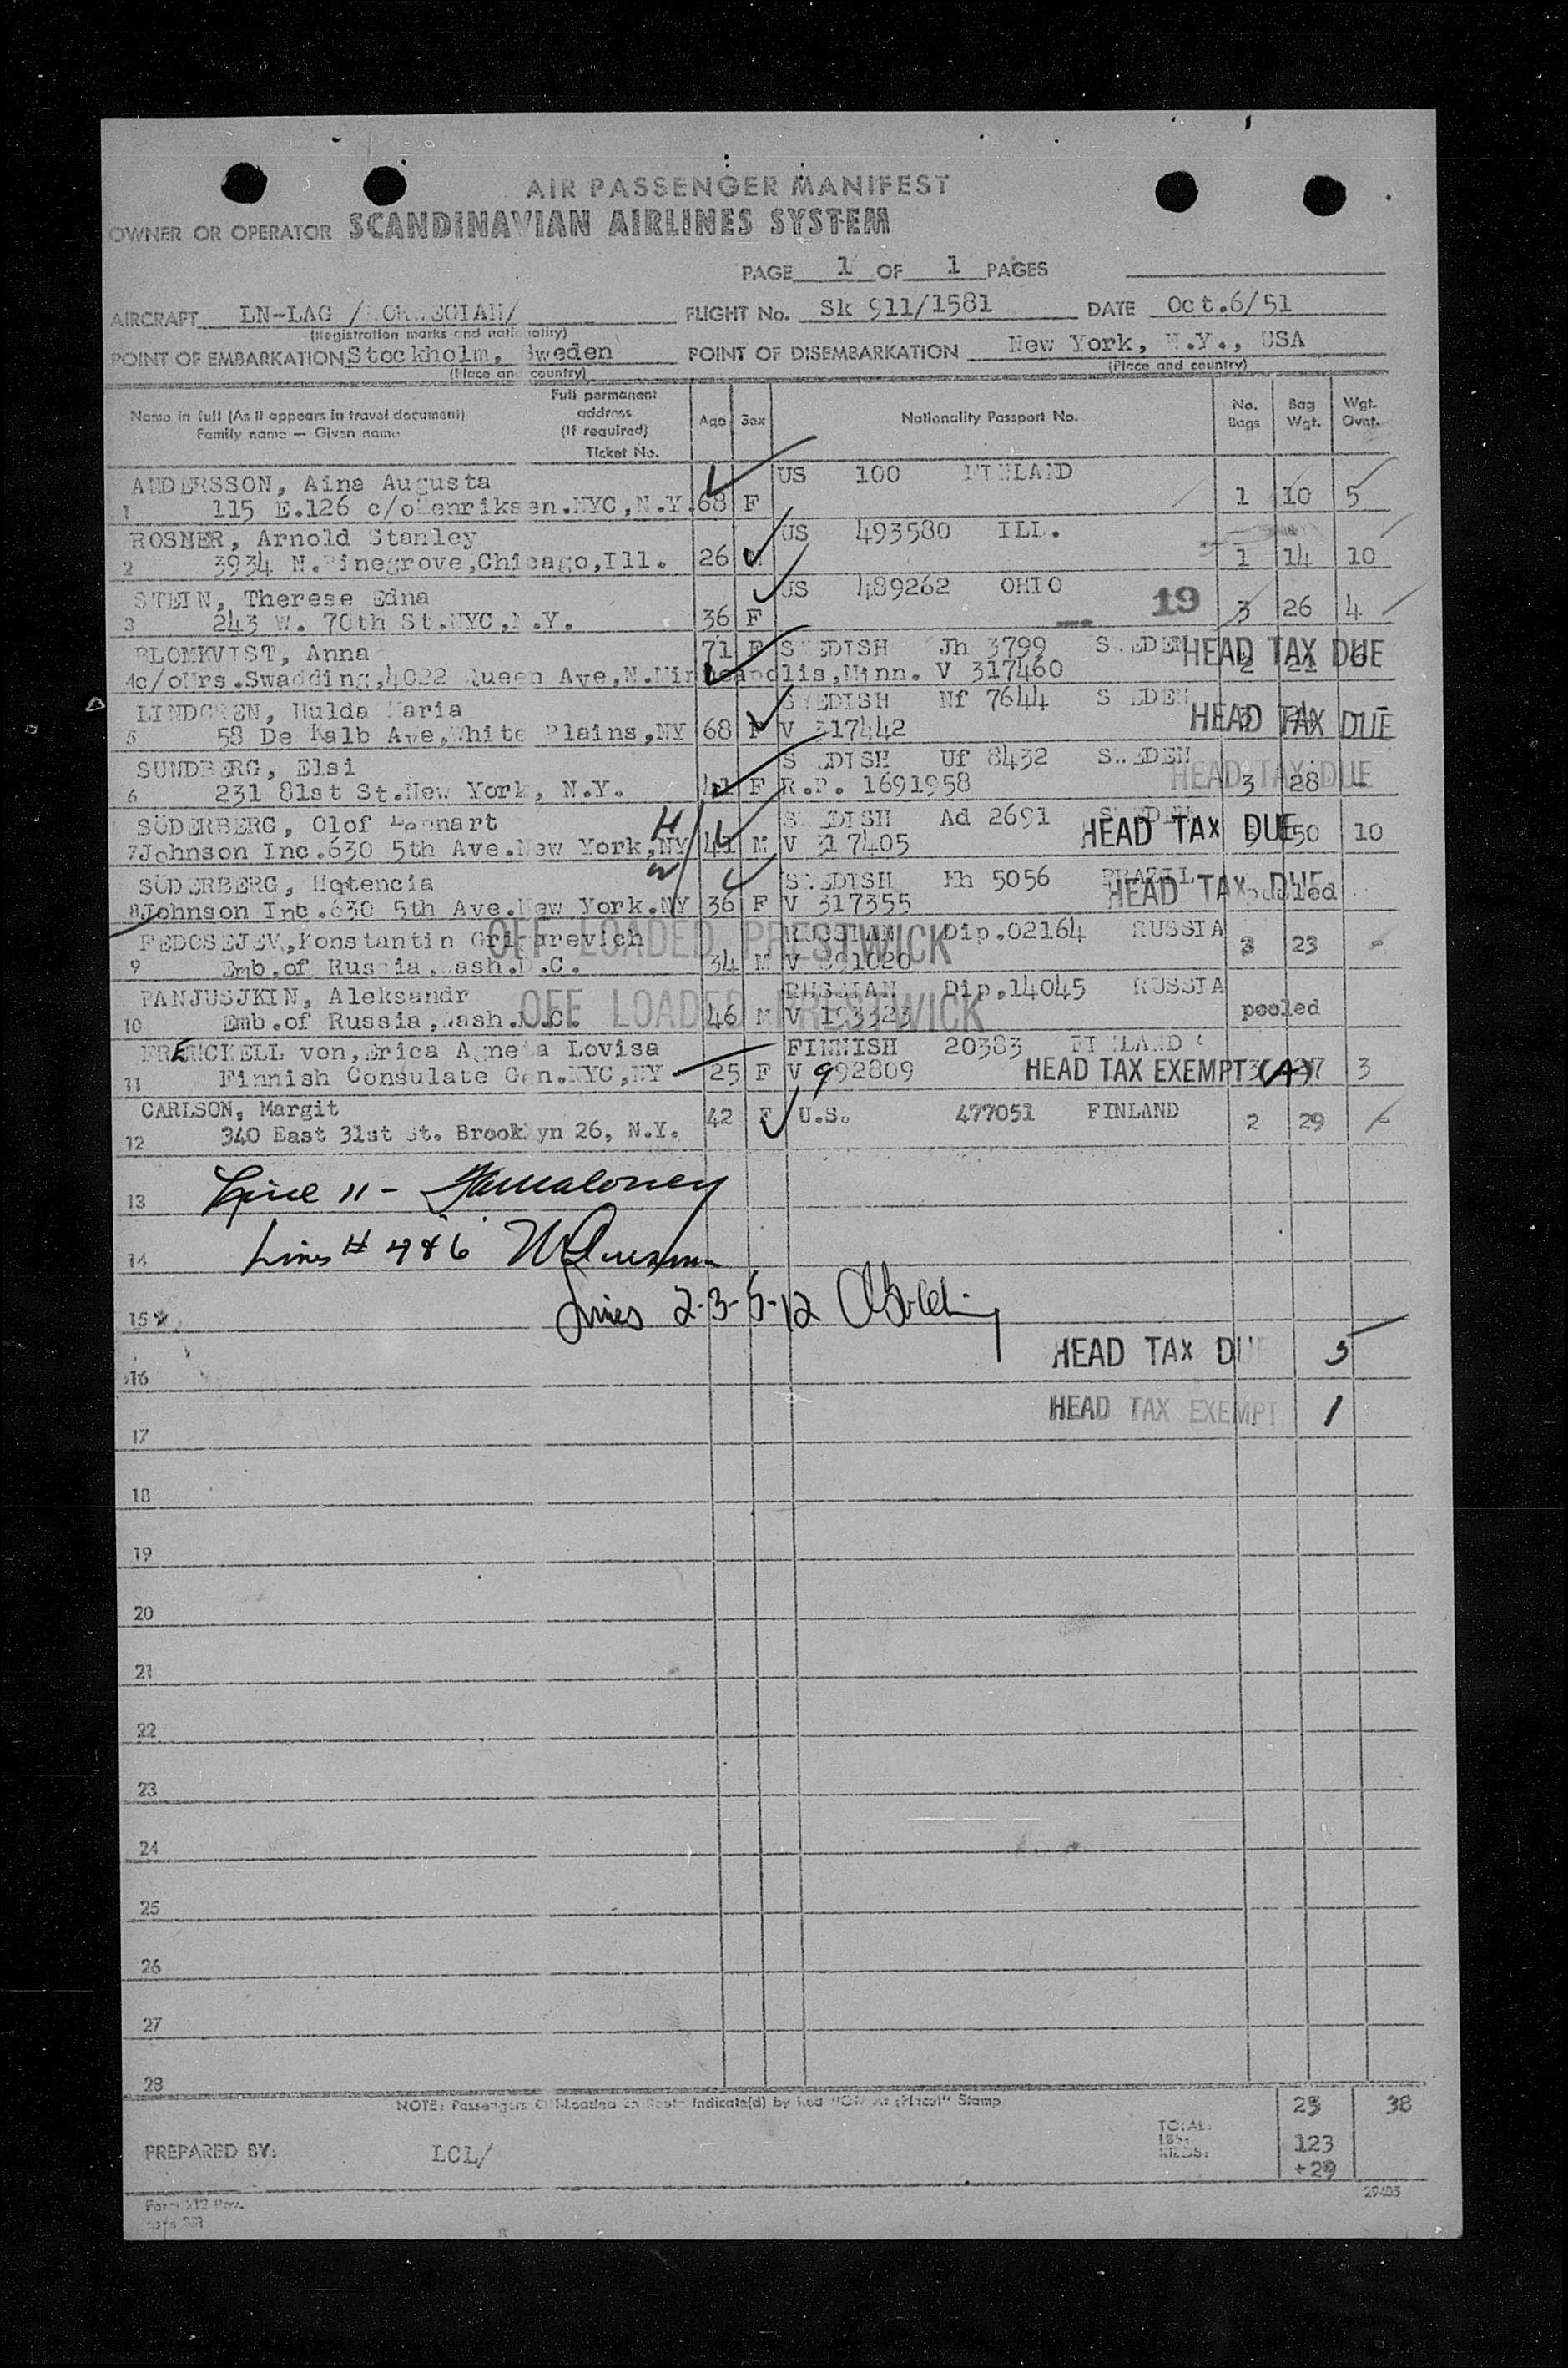 AIR PASSENGER MANIFEST
OWNER OR OPERATOR SCANDINAVIAN AIRLINES SYSTEM
PAGE 1 OF 1 PAGES
AIRCRAFT LN-LAG /NORWEGIAN/ FLIGHT No. Sk 911/1581 DATE Oct.6/51
(Registration marks and nationality)
POINT OF EMBARKATION Stockholm, Sweden POINT OF DISEMBARKATION New York, N.Y., USA
(Place and country) (Place and country)
Name in full (As it appears in travel document) Family name — Given name Full permanent address (If required) Ticket No. Age Sex Nationality Passport No. No. Bags Bag Wgt. Wgt. Ovnt.
ANDERSSON, Aina Augusta US 100 FINLAND
1 115 E.126 c/o Henriksen.NYC,N.Y. 68 F 1 10 5
ROSNER, Arnold Stanley US 493580 ILL.
2 3934 N.Pinegrove,Chicago,Ill. 26 M 1 14 10
STEIN, Therese Edna US 489262 OHIO
3 243 W. 70th St.NYC,N.Y. 36 F 19 3 26 4
BLOMKVIST, Anna 71 F SWEDISH Jh 3799 SWEDEN HEAD TAX DUE
4 c/oMrs.Swadding,4022 Queen Ave,N.Minneapolis,Minn. V 317460 2 21
LINDGREN, Hulda Maria SWEDISH Nf 7644 SWEDEN HEAD TAX DUE
5 58 De Kalb Ave,White Plains,NY 68 F V 317442
SUNDBERG, Elsi SWEDISH Uf 8432 SWEDEN HEAD TAX DUE
6 231 81st St.New York, N.Y. 41 F R.P. 1691958 3 28
SÖDERBERG, Olof Lennart H SWEDISH Ad 2691 SWEDEN HEAD TAX DUE
7 Johnson Inc.630 5th Ave.New York,NY 41 M V 317405 50 10
SÖDERBERG, Hqtencia W SWEDISH Mh 5056 BRAZIL HEAD TAX DUE
8 Johnson Inc.630 5th Ave.New York.NY 36 F V 317355 pooled
FEDOSEJEV,Konstantin Grigurevich RUSSIAN Dip.02164 RUSSIA
OFF LOADED PRESTWICK
9 Emb.of Russia.Wash.D.C. 34 M 3 23 -
PANJUSJKIN, Aleksandr RUSSIAN Dip.14045 RUSSIA
OFF LOADED PRESTWICK
10 Emb.of Russia,Wash.D.C. 46 M V 193323 pooled
FRENCKELL von,Erica Agneta Lovisa FINNISH 20383 FINLAND
11 Finnish Consulate Gen.NYC,NY 25 F V 992809 HEAD TAX EXEMPT (A) 3 27 3
CARLSON, Margit 42 F U.S. 477051 FINLAND 2 29
12 340 East 31st St. Brooklyn 26, N.Y.
13 Line 11 -
14 Lines # 4 & 6
15 Lines 2-3-5-12
16 HEAD TAX DUE 5
17 HEAD TAX EXEMPT 1
18
19
20
21
22
23
24
25
26
27
28
NOTE: Passengers Off-Loaded En Route Indicate(d) by Red "Off At (Place)" Stamp 25 38
TOTAL LBS. KILOS. 123
PREPARED BY: LCL/ +29
Form 212 Rev. 29405